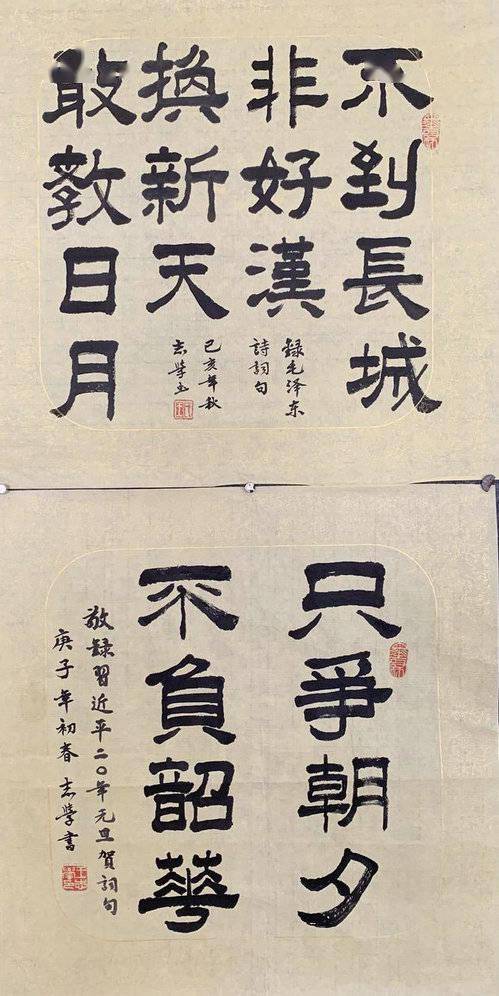 不到長城
非好漢
換新天
敢教日月
録毛泽东
詩詞句
己亥年秋
志学书
只爭朝夕
不負韶華
敬録習近平二〇年元旦賀詞句
庚子年初春 志學書